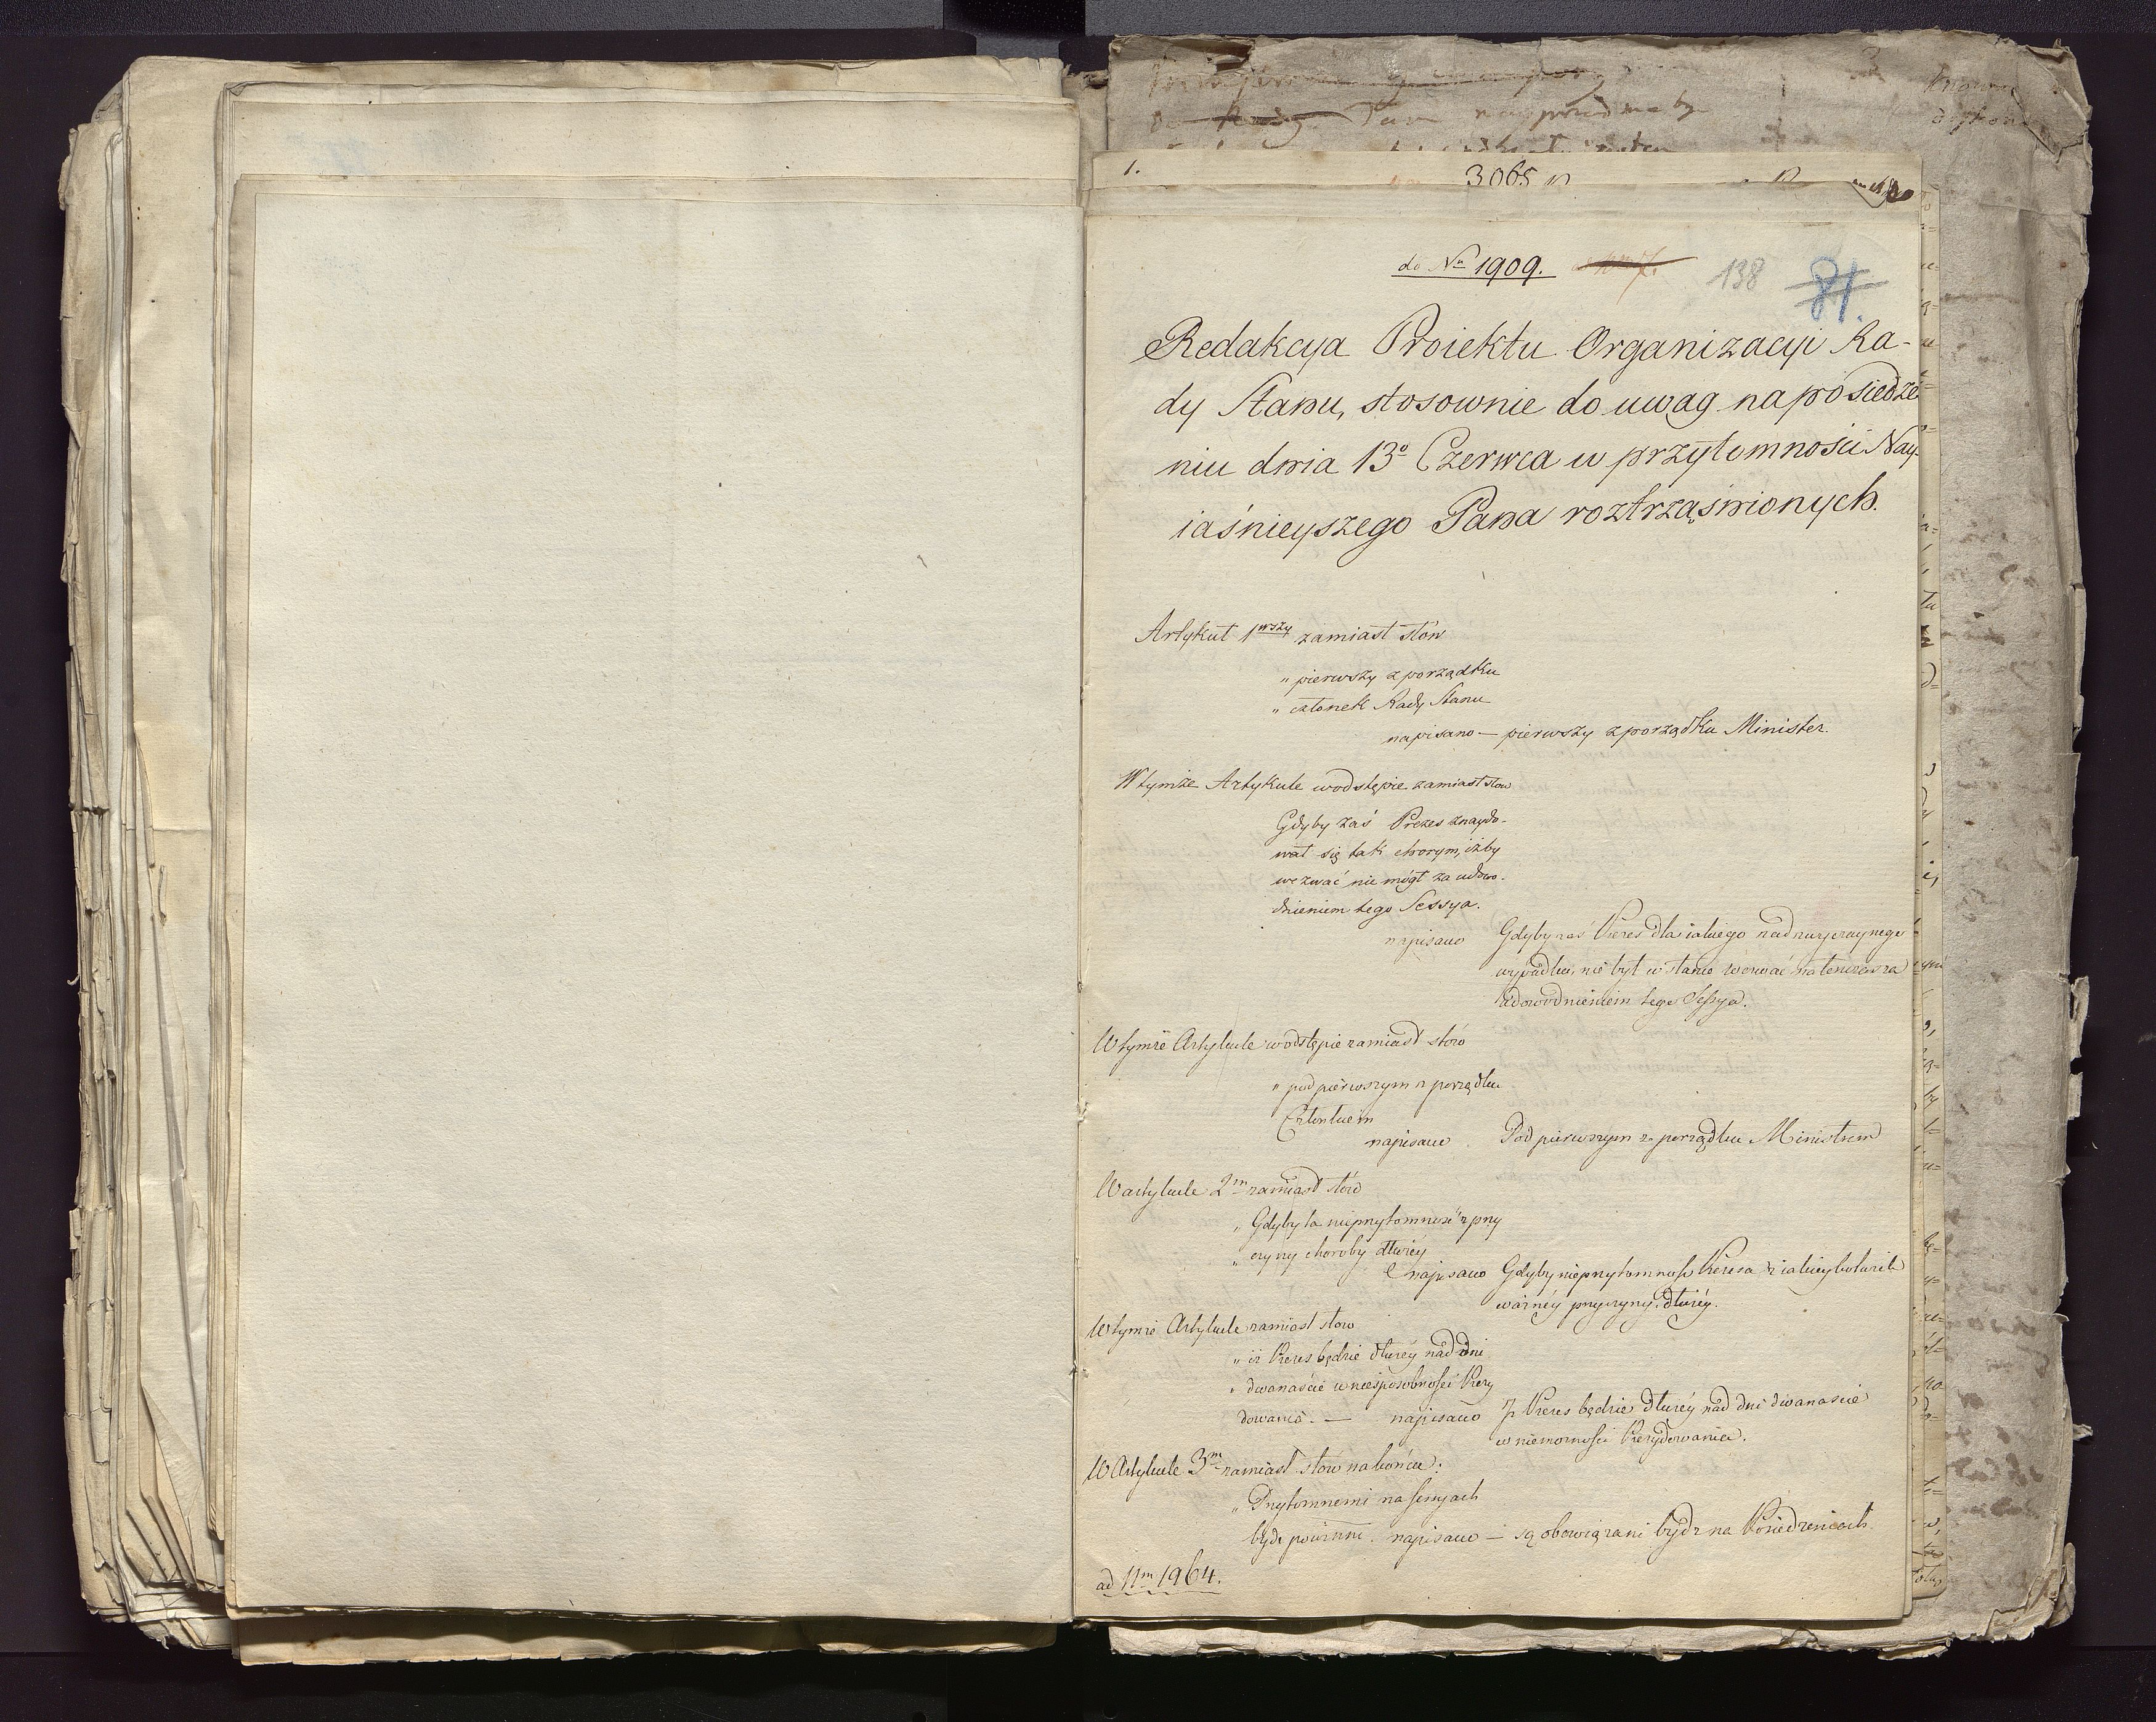 1.
3065
do Nu 1909.
138
81.
Redakcya Proiektu Organizacyi Ra-
dy Stanu, stosownie do uwag na posiedze
niu dnia 13º Czerwca w przytomności Nay-
iaśnieyszego Pana roztrząśnionych.
Artykuł 1wszy zamiast słów
„ pierwszy z porządku
„ członek Rady Stanu
napisano — pierwszy z porządku Minister.
W tymże Artykule w odstępie zamiast słow
Gdyby zaś Prezes znaydo-
wał się tak chorym, iżby
wezwać nie mógł za udowo-
dnieniem tego Sessya.
napisano Gdyby zaś Prezes dla iakiego nadzwyczaynego
wypadku, nie był w stanie wezwać natenczas za
udowodnieniem tego Sessya.
W tymże Artykule w odstępie zamiast słów
„ pod pierwszym z porządku
Członkiem
napisano Pod pierwszym z porządku Ministrem
W artykule 2m zamiast słów
„ Gdyby ta nieprzytomność z przy
„ czyny choroby dłużéy
napisano Gdyby nieprzytomność Prezesa z iakieykolwiek
ważnéy przyczyny, dłużéy.
W tymże Artykule zamiast słow
„ iż Prezes będzie dłużéy nad dni
„ dwanaście w niesposobności Prezy
dowania. — napisano Iż Prezes będzie dłużéy nad dni dwanaście
w niemożności Prezydowania.
W Artykule 3m zamiast słów na końcu:
„ Przytomnemi na sessyach
bydź powinni. napisano — są obowiązani bydź na Posiedzeniach
ad Num 1964.